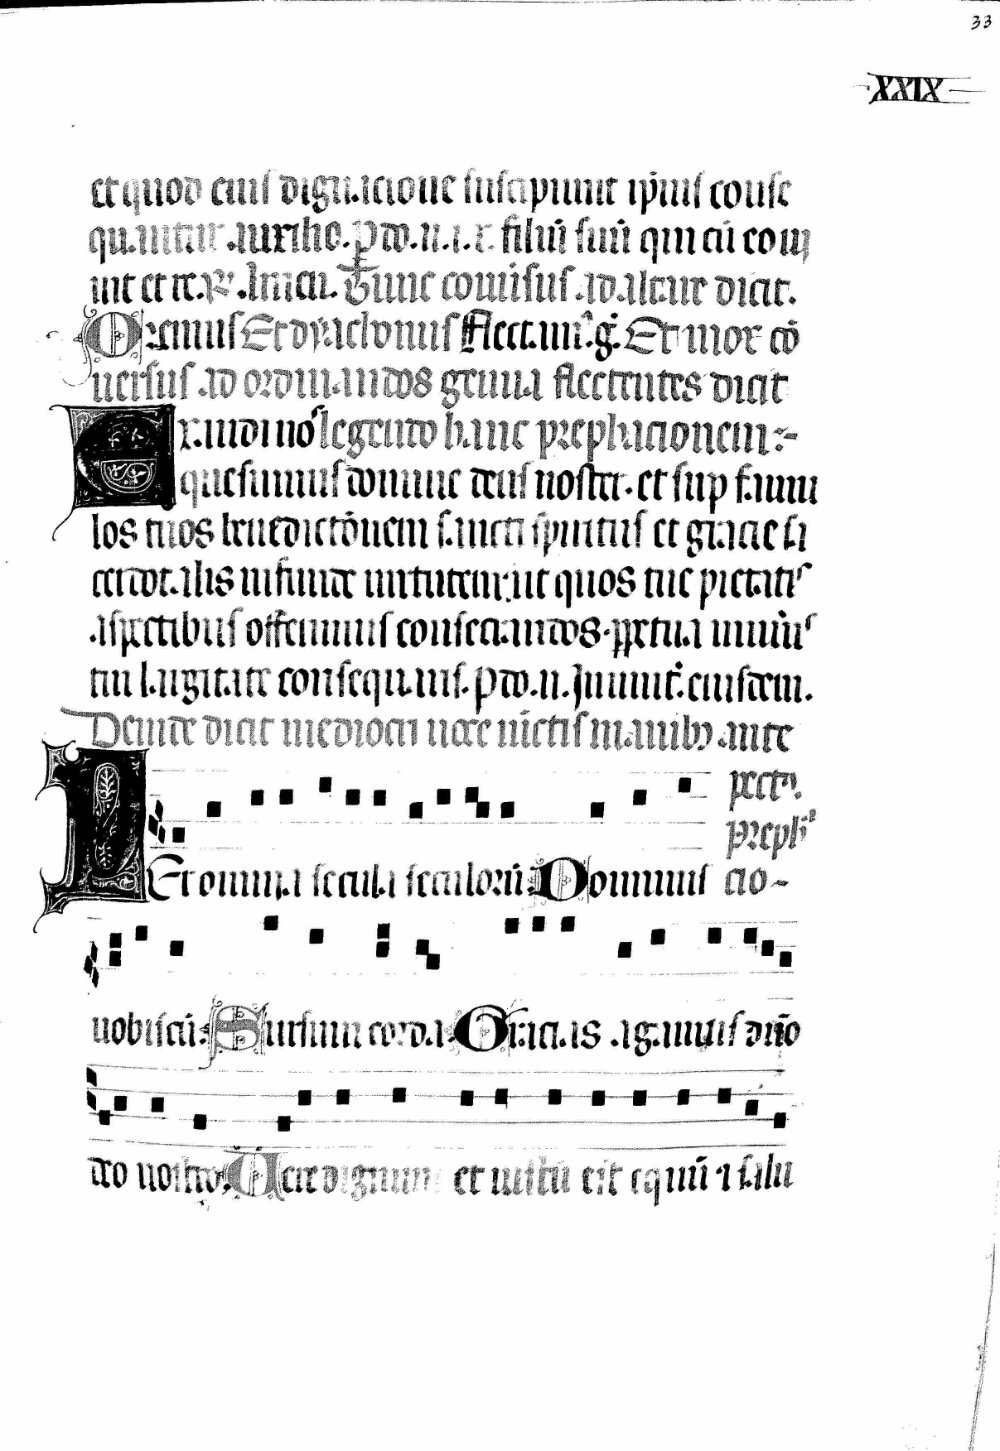 33
XXIX
et quod eius dignacione suscipiunt ip̄ius conse
quantur auxilio. p do. n. i. x. filiū suū qui cū co uj
uit et rc. R. Amen. Tunc conūsus ad altare dicat.
Oremus Et dyaclonus flectamꝰ. g̃. Et mox cō
uersus ad ordinandos genua flectentes dicat
Exaudi nos legendo hanc prephacionem :~
quesumus domine deus noster. et sup famu
los tuos benedictōnem sancti spiritus et gracie sa
cerdotalis infunde uirtutem. ut quos tue pietatis
aspectibus offerimus consecrandos. ppetua muñis
tui largitate consequantis. p do. n. Jn unit̃. eiusdem.
Deinde dicat mediocri uoce iūctis manibꝫ ante
pectꝰ.
Preph̄
Per omnia secula seculorū. Dominus cio~
uobiscū. Sursum corda. Gracias agamus dño
deo nostro. Uere dignum et iustū est equū ⁊ salu